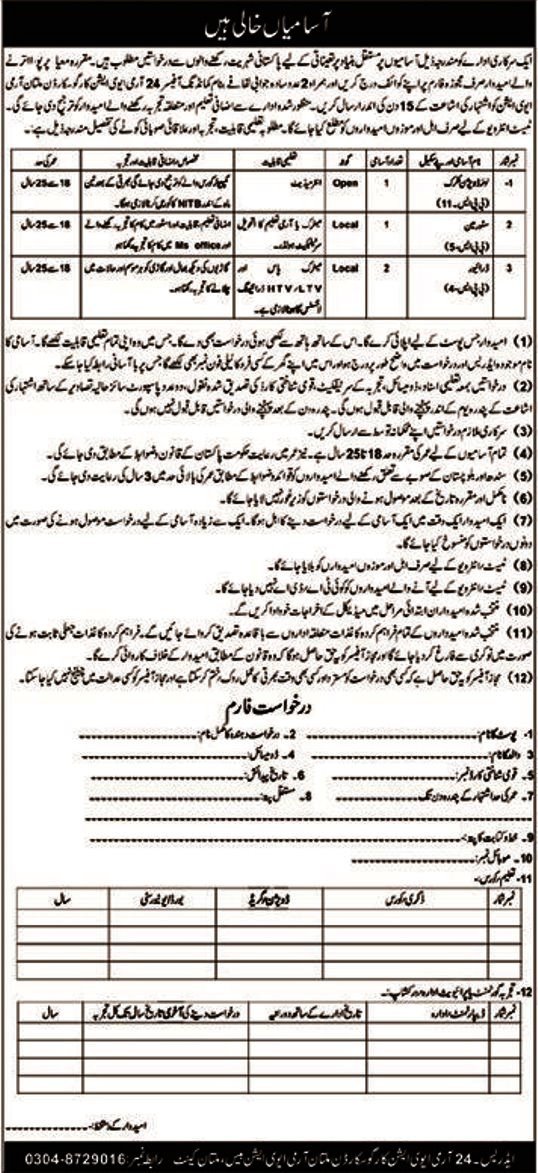 آسامیاں خالی ہیں
ایک سرکاری ادارے کو مندرجہ ذیل آسامیوں پر مستقل بنیاد پر تعیناتی کے لیے پاکستانی شہریت رکھنے والوں سے درخواستیں مطلوب ہیں۔ مقررہ معیار پر پورا اترنے
والے امیدوار صرف مجوزہ فارم پر اپنے کوائف درج کریں اور ہمراہ 2 عدد سادہ جوابی لفافے بنام کمانڈنگ آفیسر 24 آرمی ایوی ایشن کارگو رکارڈن ملتان آرمی
ایوی ایشن کو اشتہار کی اشاعت کے 15 دن کی اندر ارسال کریں۔ منظور شدہ ادارے سے اضافی تعلیم اور متعلقہ تجربہ رکھنے والے امیدوار کو ترجیح دی جائے گی۔
ٹیسٹ انٹرویو کے لیے صرف اہل اور موزوں امیدواروں کو مطلع کیا جائے گا۔ مطلوبہ تعلیمی قابلیت، تجربہ اور علاقائی صوبائی کوٹے کی تفصیل مندرجہ ذیل ہے:۔
نمبر شمار نام آسامی اور پے سکیل تعداد آسامی کوٹہ تعلیمی قابلیت مخصوص اضافی قابلیت اور تجربہ عمر کی حد
1- لوئر ڈویژن کلرک (بی پی ایس۔11) 1 Open انٹرمیڈیٹ کمپیوٹر کورس والے کو ترجیح دی جائے گی بھرتی کے بعد تین ماہ کے اندر NITB کا کورس کرنا لازمی ہوگا۔ 18 سے 25 سال
2 سٹور مین (بی پی ایس۔5) 1 Local میٹرک یا آرمی تعلیم کا اکیویلنٹ سرٹیفکیٹ ہولڈر۔ اضافی تعلیمی قابلیت اور سٹور میں کام کا تجربہ رکھنے والے اور Ms office میں کام کا تجربہ رکھتا ہو 18 سے 25 سال
3 ڈرائیور (بی پی ایس۔4) 2 Local میٹرک پاس اور HTV/LTV ڈرائیونگ لائسنس کا ہونا لازمی ہے۔ گاڑیوں کی دیکھ بھال اور گاڑی کو ہر موسم اور حالات میں چلانے کا تجربہ رکھتا ہو۔ 18 سے 25 سال
(1) امیدوار جس پوسٹ کے لیے اپلائی کرے گا۔ اس کے ساتھ ہاتھ سے لکھی ہوئی درخواست بھی دے گا۔ جس میں وہ اپنی تمام تعلیمی قابلیت لکھے گا۔ آسامی کا
نام موجودہ ایڈریس اور درخواست میں واضح طور پر درج ہو اور اس میں اپنے گھر کے کسی فرد کا ٹیلی فون نمبر بھی لکھے گا جس پر با آسانی رابطہ کیا جا سکے۔
(2) درخواستیں بمعہ تعلیمی اسناد، ڈومیسائل، تجربہ کے سرٹیفکیٹ، قومی شناختی کارڈ کی تصدیق شدہ نقول، دو عدد پاسپورٹ سائز حالیہ تصاویر کے ساتھ اشتہار کی
اشاعت کے پندرہ یوم کے اندر پہنچنے والی قابل قبول ہوں گی۔ پندرہ دن کے بعد پہنچنے والی درخواستیں قابل قبول نہیں ہوں گی۔
(3) سرکاری ملازم درخواستیں اپنے محکمانہ توسط سے ارسال کریں۔
(4) تمام آسامیوں کے لیے عمر کی مقررہ حد 18 تا 25 سال ہے۔ نیز عمر میں رعایت حکومت پاکستان کے قانون و ضوابط کے مطابق دی جائے گی۔
(5) سندھ اور بلوچستان کے صوبے سے تعلق رکھنے والے امیدواروں کو قواعد و ضوابط کے مطابق عمر کی بالائی حد میں 3 سال کی رعایت دی جائے گی۔
(6) نامکمل اور مقررہ تاریخ کے بعد موصول ہونے والی درخواستوں کو زیر غور نہیں لایا جائے گا۔
(7) ایک امیدوار ایک وقت میں ایک آسامی کے لیے درخواست دینے کا اہل ہوگا۔ ایک سے زیادہ آسامی کے لیے درخواست موصول ہونے کی صورت میں
دونوں درخواستوں کو منسوخ کیا جائے گا۔
(8) ٹیسٹ انٹرویو کے لیے صرف اہل اور موزوں امیدواروں کو بلایا جائے گا۔
(9) ٹیسٹ انٹرویو کے لیے آنے والے امیدواروں کو کوئی ٹی اے/ڈی اے نہیں دیا جائے گا۔
(10) منتخب شدہ امیدواران ابتدائی مراحل میں میڈیکل کے اخراجات خود ادا کریں گے۔
(11) منتخب شدہ امیدواروں کے تمام فراہم کردہ کاغذات متعلقہ اداروں سے باقاعدہ تصدیق کروائے جائیں گے۔ فراہم کردہ کاغذات جعلی ثابت ہونے کی
صورت میں نوکری سے فارغ کر دیا جائے گا اور مجاز آفیسر کو یہ حق حاصل ہوگا کہ وہ قانون کے مطابق امیدوار کے خلاف کاروائی کرے گا۔
(12) مجاز آفیسر کو یہ حق حاصل ہے کہ کسی بھی درخواست کو مسترد اور کسی بھی وقت بھرتی کا عمل روک/ختم کر سکتا ہے اور مجاز آفیسر کو کسی عدالت میں چیلنج نہیں کیا جا سکتا۔
درخواست فارم
1۔ پوسٹ کا نام: 2۔ درخواست دہندہ کا مکمل نام:
3 والد کا نام: 4۔ ڈومیسائل:
5۔ قومی شناختی کارڈ نمبر: 6۔ تاریخ پیدائش:
7۔ عمر کی حد اشتہار کے پندرہ دن تک 8۔ مستقل پتہ:
9۔ خط و کتابت کا پتہ:
10۔ موبائل نمبر:
11۔ تعلیم/کورس:
نمبر شمار ڈگری/کورس ڈویژن/گریڈ بورڈ/یونیورسٹی سال
12- تجربہ گورنمنٹ یا پرائیویٹ ادارہ/ورکشاپ:۔
نمبر شمار ڈیپارٹمنٹ/ادارہ تاریخ ادارے کے ساتھ دورانیہ درخواست دینے کی آخری تاریخ سال تک کل تجربہ سال
امیدوار کے دستخط:
ایڈریس۔ 24 آرمی ایوی ایشن کارگو رکارڈن ملتان آرمی ایوی ایشن بیس، ملتان کینٹ رابطہ نمبر: 0304-8729016